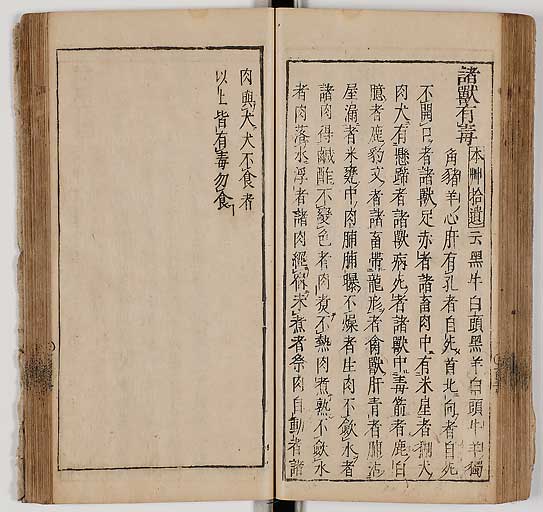 諸獸有毒
本艸拾遺云黑牛白頭黑羊白頭牛羊獨
角豬羊心肝有孔者自死首北向者自死
不開口者諸獸足赤者諸畜肉中有米星者猘犬
肉犬有懸蹄者諸獸病死者諸獸中毒箭者鹿白
臆者鹿豹文者諸畜帶龍形者禽獸肝青者脯沾
屋漏者米甕中肉脯脯曝不燥者生肉不斂水者
諸肉得鹹酢不變色者肉煮不熱肉煮熟不斂水
者肉落水浮者諸肉經宿未煮者祭肉自動者諸
肉與犬犬不食者
以上皆有毒勿食